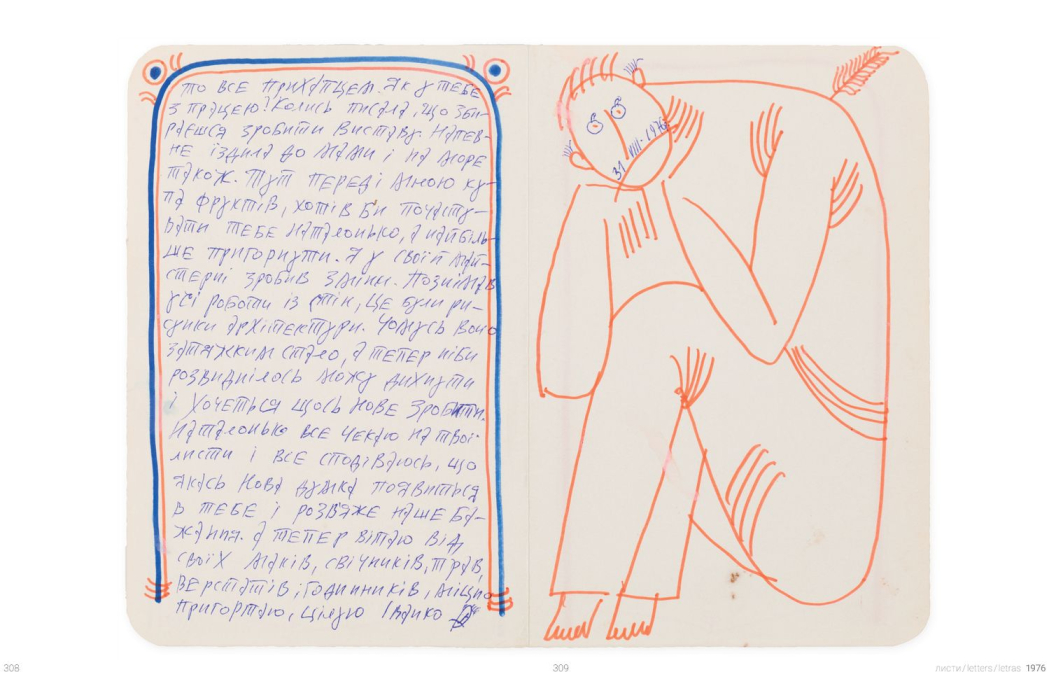 то все прихапцем. Як у тебе
з працею? Колись писала, що зби-
раєшся зробити виставу. Напев-
не їздила до мами і на море
також. Тут переді мною ку-
па фруктів, хотів би почасту-
вати тебе Наталонько, а найбіль-
ше пригорнути. Я у своїй май-
стерні зробив зміни. Познімав
усі роботи із стін, це були ри-
сунки архітектури. Чомусь воно
затяжким стало, а тепер ніби
розвиднілось можу дихнути
і хочеться щось нове зробити.
Наталонько все чекаю на твої
листи і все сподіваюсь, що
якась нова думка появиться
в тебе і розв'яже наше ба-
жання. А тепер вітаю від
своїх маків, свічників, трав,
верстатів, годинників, міцно
пригортаю, цілую Івамко
31 VIII. 1976
308
309
листи/letters/letras 1976